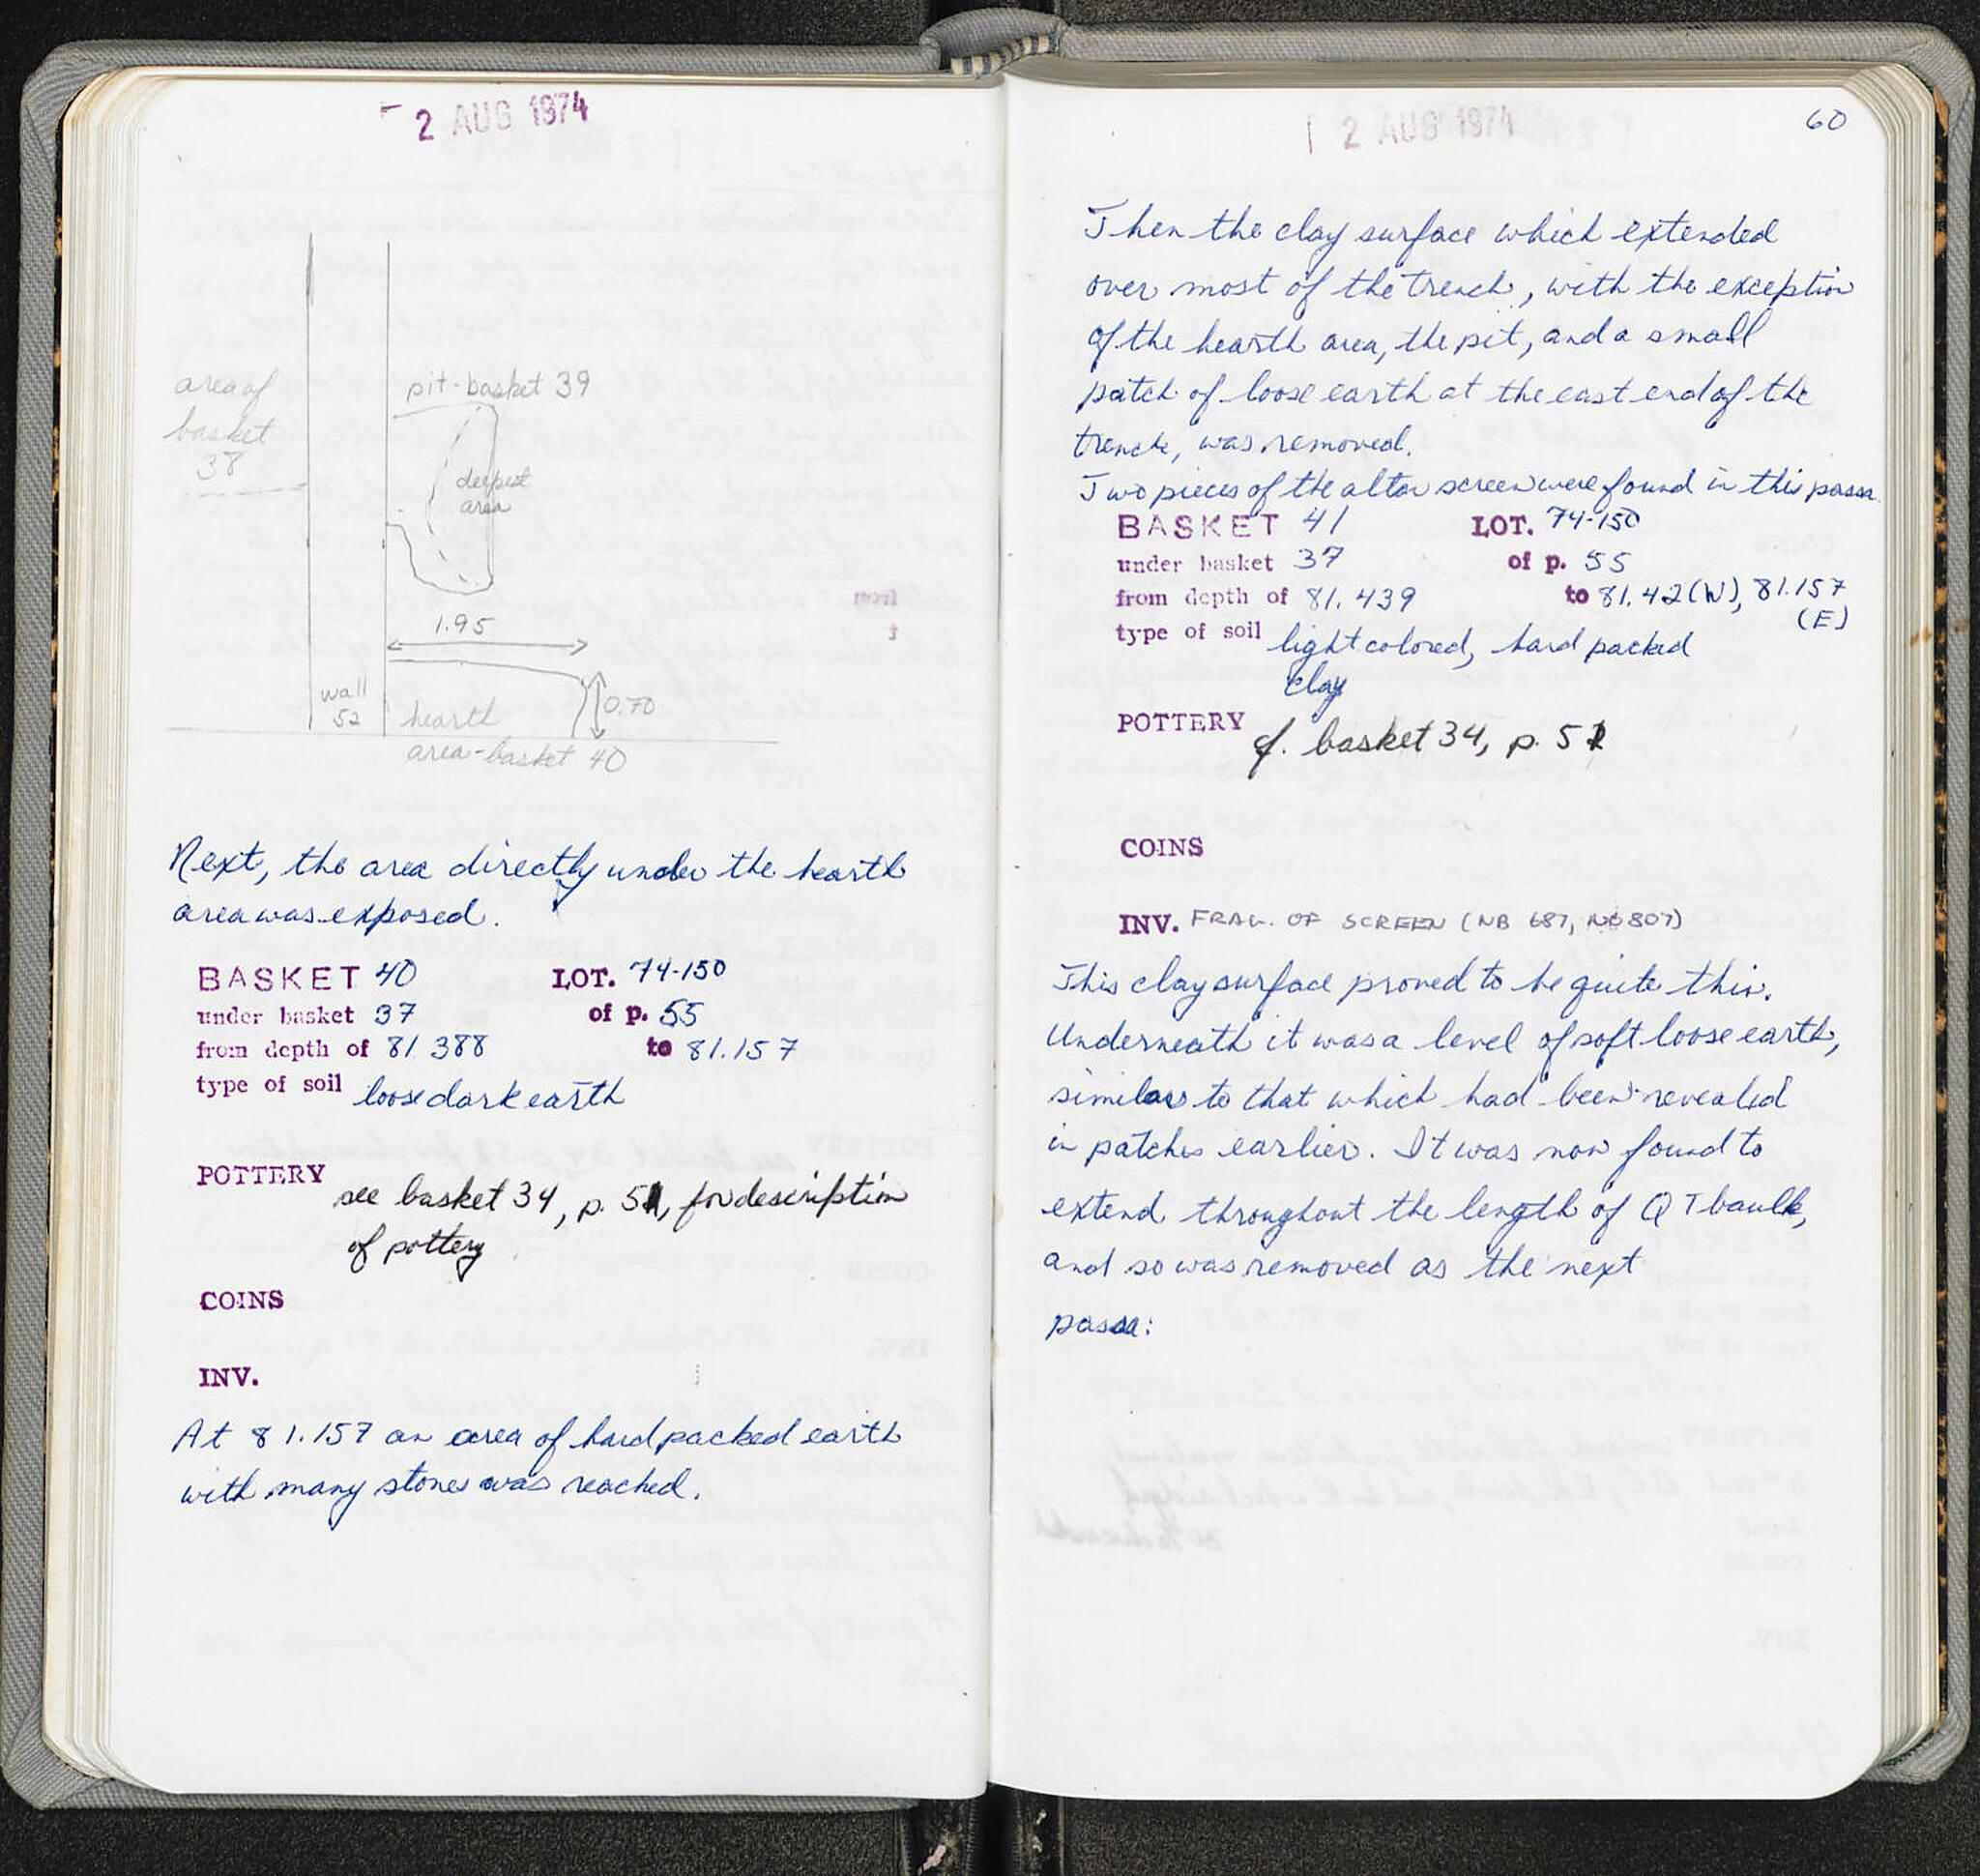 2 AUG 1974
area of
basket
38
pit-basket 39
deepest
area
1.95
wall
52
hearth
0.70
area-basket 40
Next, the area directly under the hearth
area was exposed.
BASKET 40 LOT. 74-150
under basket 37 of p. 55
from depth of 81 388 to 81.157
type of soil loose dark earth
POTTERY see basket 34, p. 51, for description
of pottery
COINS
INV.
At 81.157 an area of hard packed earth
with many stones was reached.
2 AUG 1974
60
Then the clay surface which extended
over most of the trench, with the exception
of the hearth area, the pit, and a small
patch of loose earth at the east end of the
trench, was removed.
Two pieces of the altar screen were found in this passa.
BASKET 41 LOT. 74-150
under basket 37 of p. 55
from depth of 81.439 to 81.42(W), 81.157
(E)
type of soil light colored, hard packed
clay
POTTERY cf. basket 34, p. 51
COINS
INV. FRAG. OF SCREEN (NB 687, NB 807)
This clay surface proved to be quite thin.
Underneath it was a level of soft loose earth,
similar to that which had been revealed
in patches earlier. It was now found to
extend throughout the length of Q T baulk,
and so was removed as the next
passa: